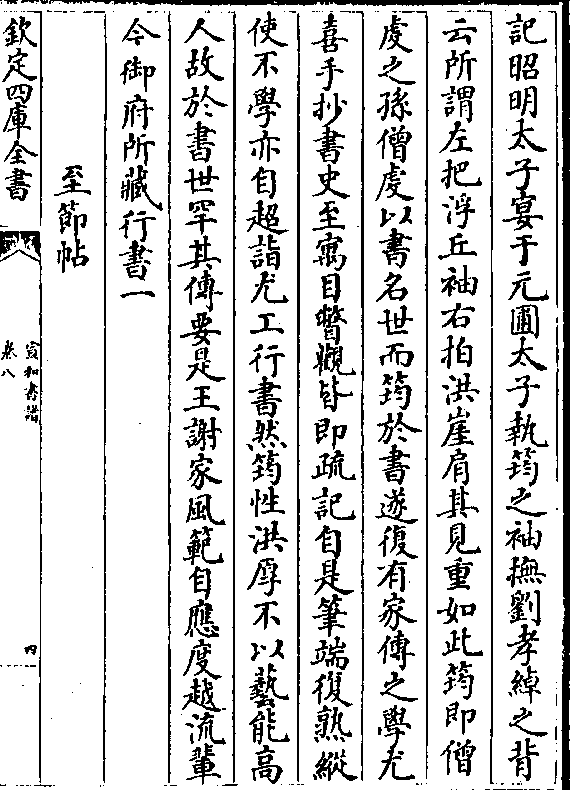 記昭明太子宴于元圃太子執筠之袖撫劉孝綽之背
云所謂左把浮丘袖右拍洪崖肩其見重如此筠即僧
虔之孫僧虔以書名世而筠於書遂復有家傳之學尤
喜手抄書史至寓目瞥觀皆即疏記自是筆端復熟縱
使不學亦自超詣尤工行書然筠性洪厚不以藝能高
人故於書世罕其傳要是王謝家風範自應度越流輩
今御府所藏行書一
至節帖
欽定四庫全書
宣和書譜
卷八
四